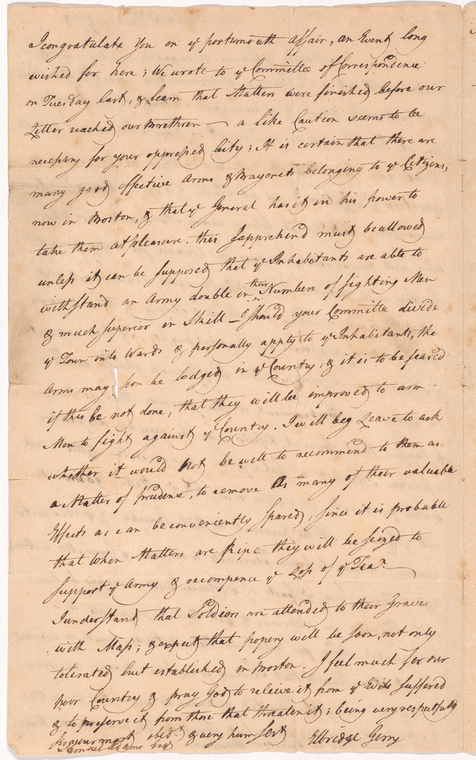 I congratulate You on ye portsmouth affair, an Event long
wished for here; We wrote to ye Committee of Correspondence
on Tuesday last, & learn that Matters were finished before our
Letter reached our Brethren — a like Caution seems to be
necessary for your oppressed City; It is certain that there are
many good effective Arms & Bayonets belonging to ye Citizens,
now in Boston, & that ye General has it in his power to
take them at pleasure. this I apprehend must be allowed
unless it can be supposed that ye Inhabitants are able to
withstand an Army double in their Numbers of fighting Men
& much superior in Skill — Should your Committee divide
ye Town into Wards & personally apply to ye Inhabitants, the
Arms may soon be lodged in ye Country; & it is to be feared
if this be not done, that they will be improved to arm
Men to fight against ye Country. I will beg Leave to ask
whether it would not be well to recommend to them as
a Matter of Prudence, to remove as many of their valuable
Effects as can be conveniently spared, since it is probable
that when Matters are Ripe they will be seized to
support ye Army & recompence ye Loss of ye Tea?
I understand that Soldiers are attended to their Graves
with Mass; & expect that popery will be soon, not only
tolerated but established in Boston. I feel much for our
poor Country & pray God to relieve it from ye Evils suffered
& to preserve it from those that threaten it; being very respectfully
sir your most obedt & very hum Sert Elbridge Gerry
Samuel Adams Esq